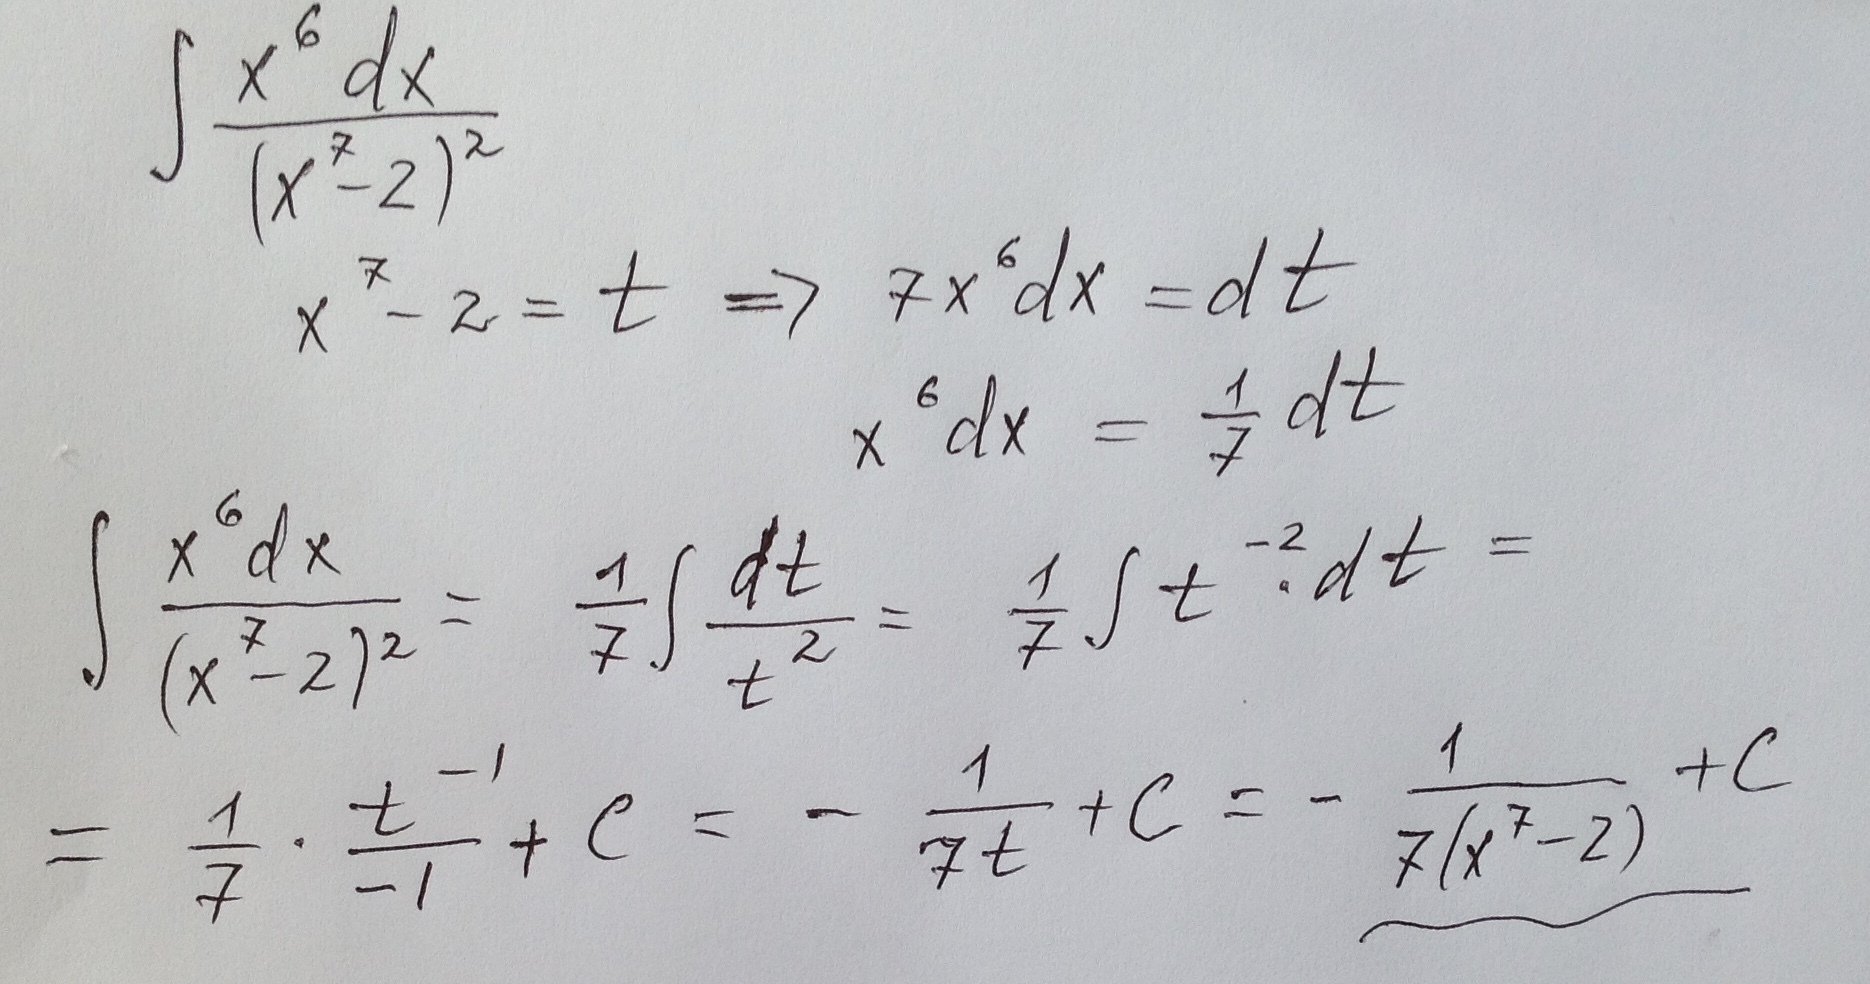 ∫ x⁶dx / (x⁷-2)²
x⁷-2 = t ⇒ 7x⁶dx = dt
x⁶dx = 1/7 dt
∫ x⁶dx / (x⁷-2)² = 1/7 ∫ dt/t² = 1/7 ∫ t⁻² · dt =
= 1/7 · t⁻¹/-1 + C = - 1/7t + C = - 1/7(x⁷-2) + C